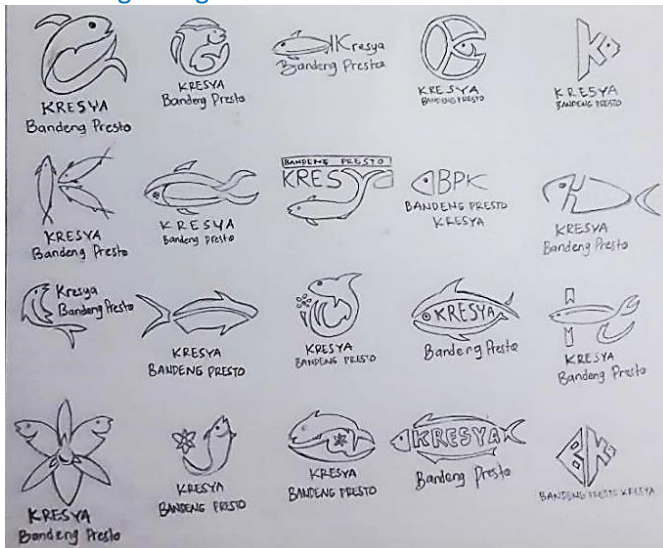 KRESYA
Bandeng Presto
KRESYA
Bandeng Presto
Kresya
Bandeng Presto
KRESYA
BANDENG PRESTO
K
KRESYA
BANDENG PRESTO
KRESYA
Bandeng Presto
KRESYA
Bandeng Presto
BANDENG PRESTO
KRESya
BPK
BANDENG PRESTO
KRESYA
KRESYA
Bandeng Presto
Kresya
Bandeng Presto
KRESYA
BANDENG PRESTO
KRESYA
BANDENG PRESTO
KRESYA
Bandeng Presto
KRESYA
Bandeng Presto
KRESYA
Bandeng Presto
KRESYA
BANDENG PRESTO
KRESYA
BANDENG PRESTO
KRESYA
Bandeng Presto
BK
BANDENG PRESTO KRESYA